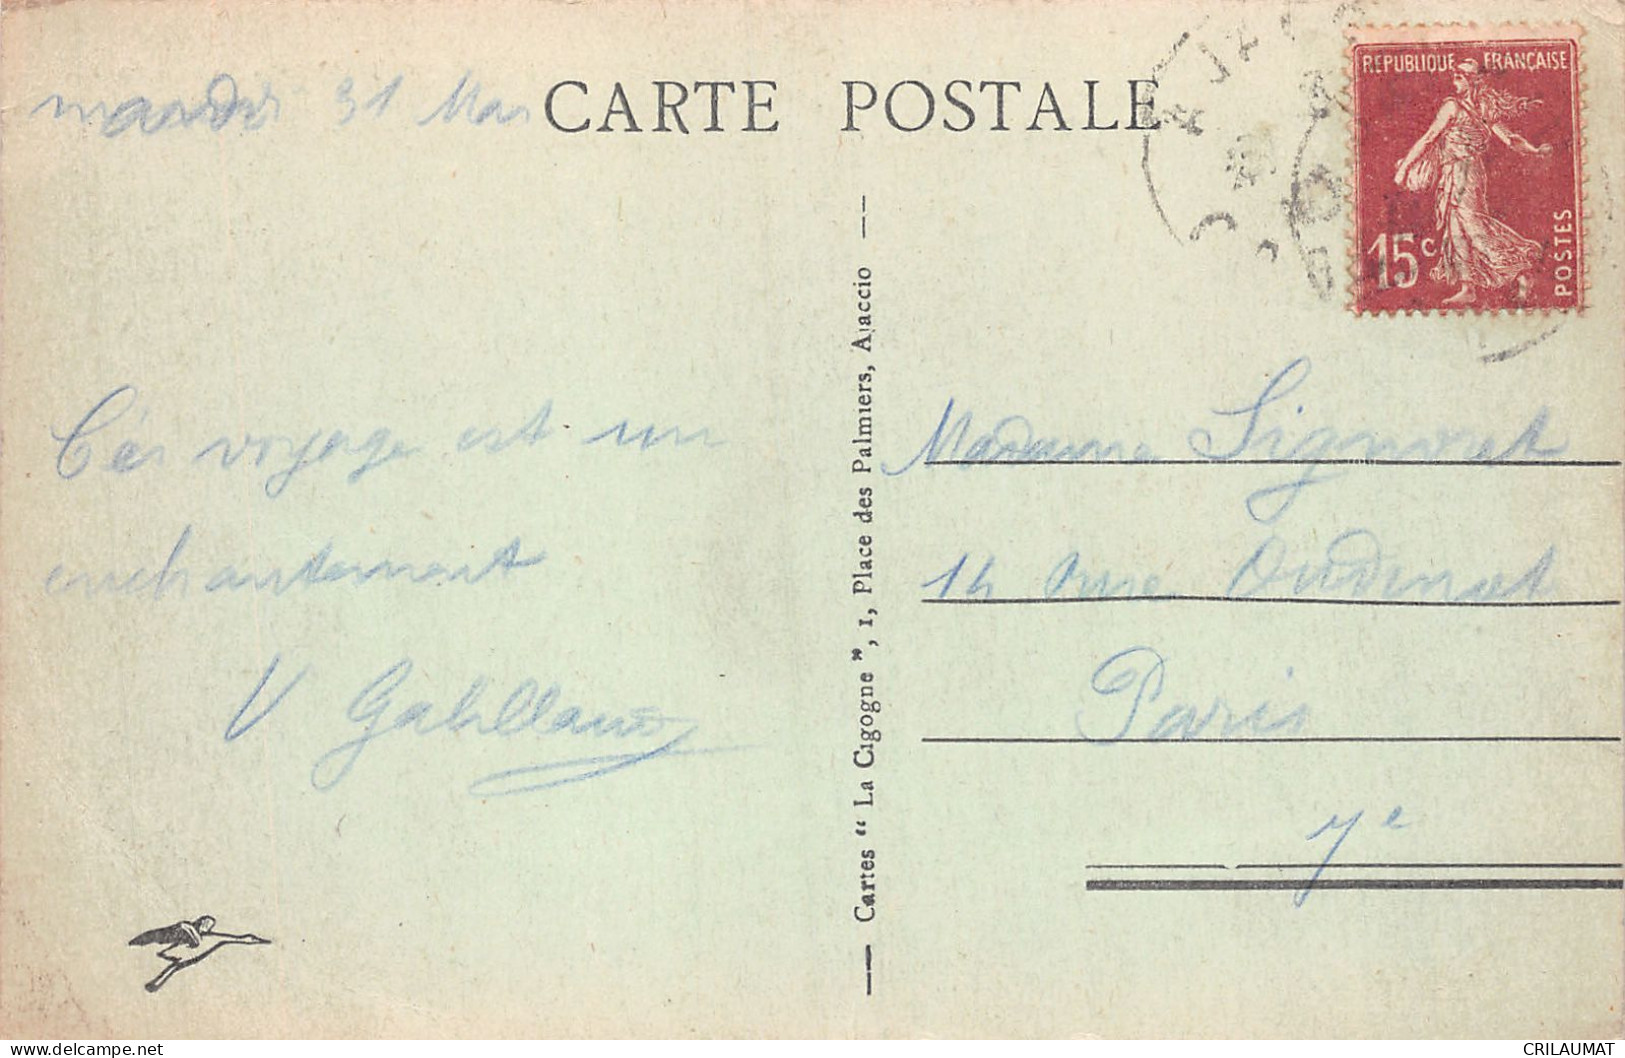 mardi 31 Mar
CARTE POSTALE
REPUBLIQUE FRANÇAISE
15c
POSTES
Cartes “ La Cigogne ”, 1, Place des Palmiers, Ajaccio
Ces voyage est un
enchantement
V
Madame Signoret
14 rue Oudinot
Paris
7e
CRILAUMAT